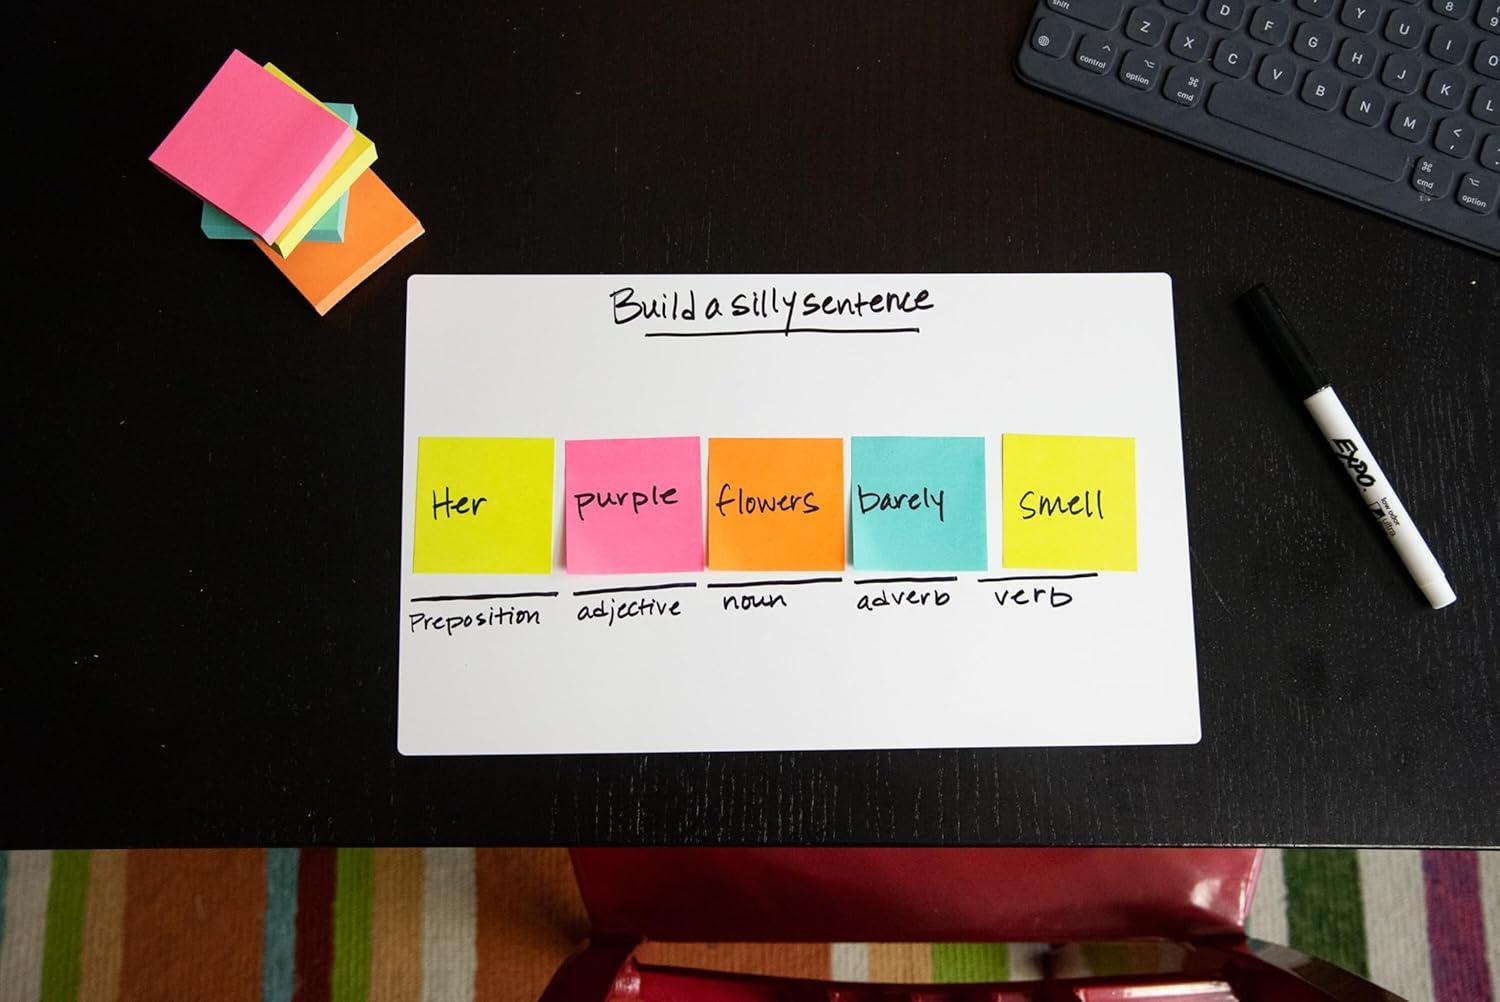 shift Z D F G Y U I 8 9
control option cmd X C V B H J K O
N M < , L
cmd option
Build a silly sentence
Her purple flowers barely smell
Preposition adjective noun adverb verb
EXPO.
low odor
ultra